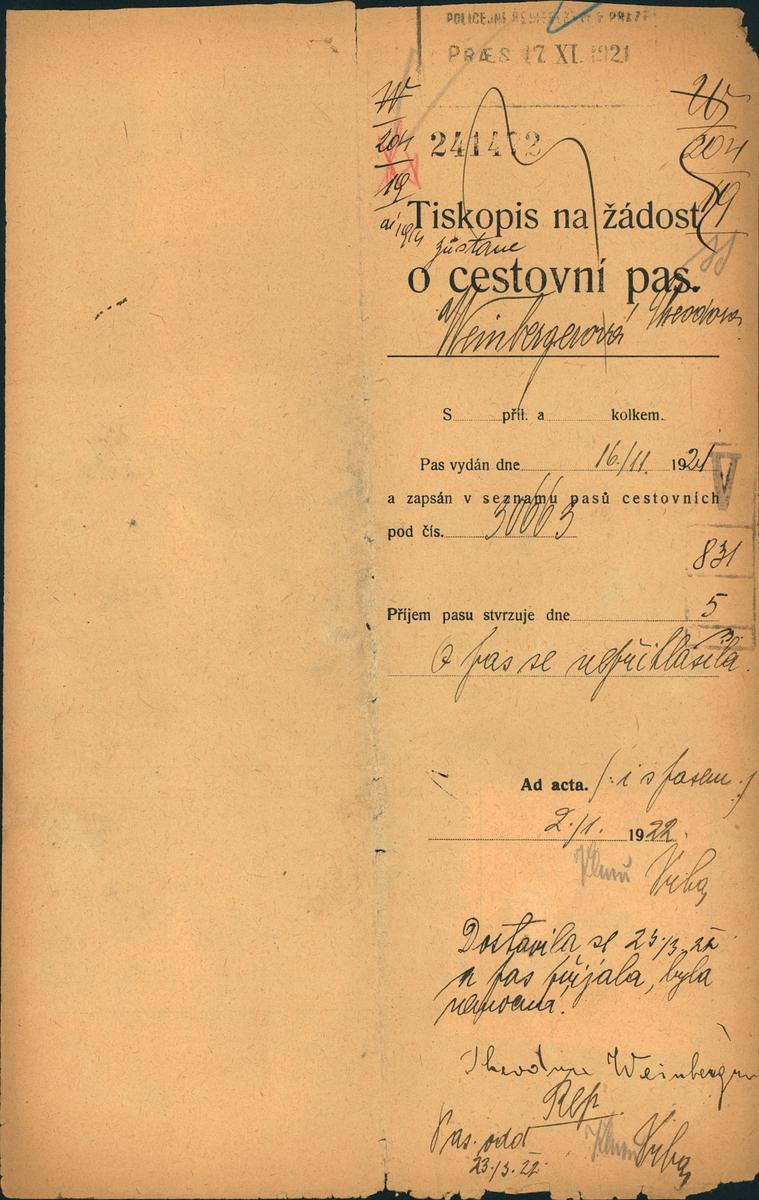 POLICEJNÍ ŘEDITELSTVÍ V PRAZE
PRÆS 17 XI. 1921
W
204
19
241472
W
204
19
Tiskopis na žádost
zůstane
o cestovní pas.
Weinbergerová Theodora
S příl. a kolkem.
Pas vydán dne 16./11. 1921
V
a zapsán v seznamu pasů cestovních
pod čís. 30663
831
Příjem pasu stvrzuje dne
5
O pas se nepřihlásila.
Ad acta. /: i s pasem :/
2./1. 1922.
Vrba
Dostavila se 23./3. 22
a pas přijala, byla
nemocná.
Theodora Weinberger
Rep
Pas. odd
23./3. 22
Vrba